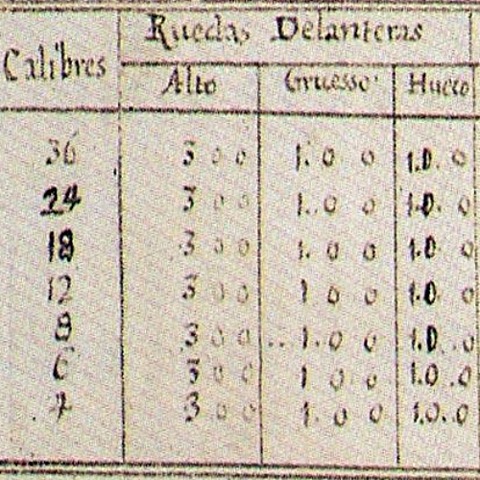 Calibres Ruedas Delanteras
Alto Gruesso Hueco
36 3 0 0 1. 0 0 1.0. 0
24 3 0 0 1. 0 0 1.0. 0
18 3 0 0 1. 0 0 1.0 0
12 3 0 0 1 0 0 1.0. 0
8 3 0 0 1. 0 0 1.0. 0
6 3 0 0 1 0. 0 1.0 .0
4 3 0 0 1. 0 0 1.0. 0